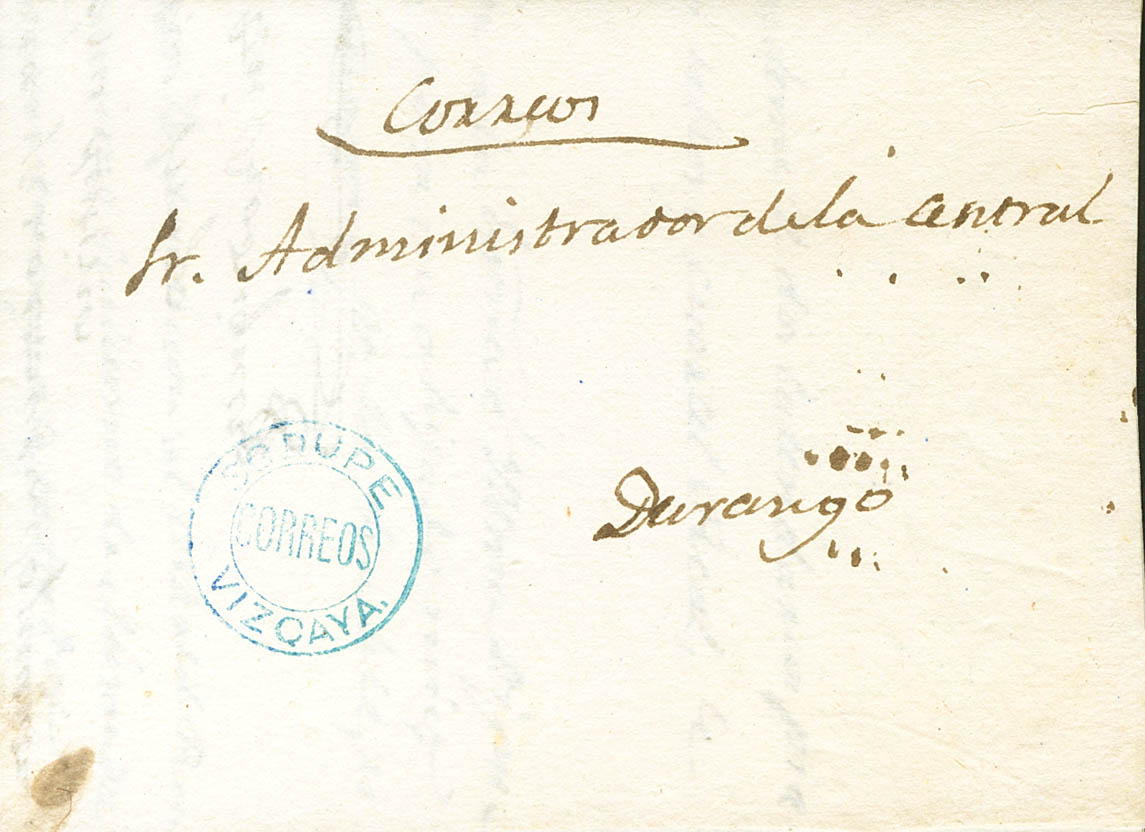 Correos
Sr. Administrador de la Central
Durango
SODUPE
CORREOS
VIZCAYA.